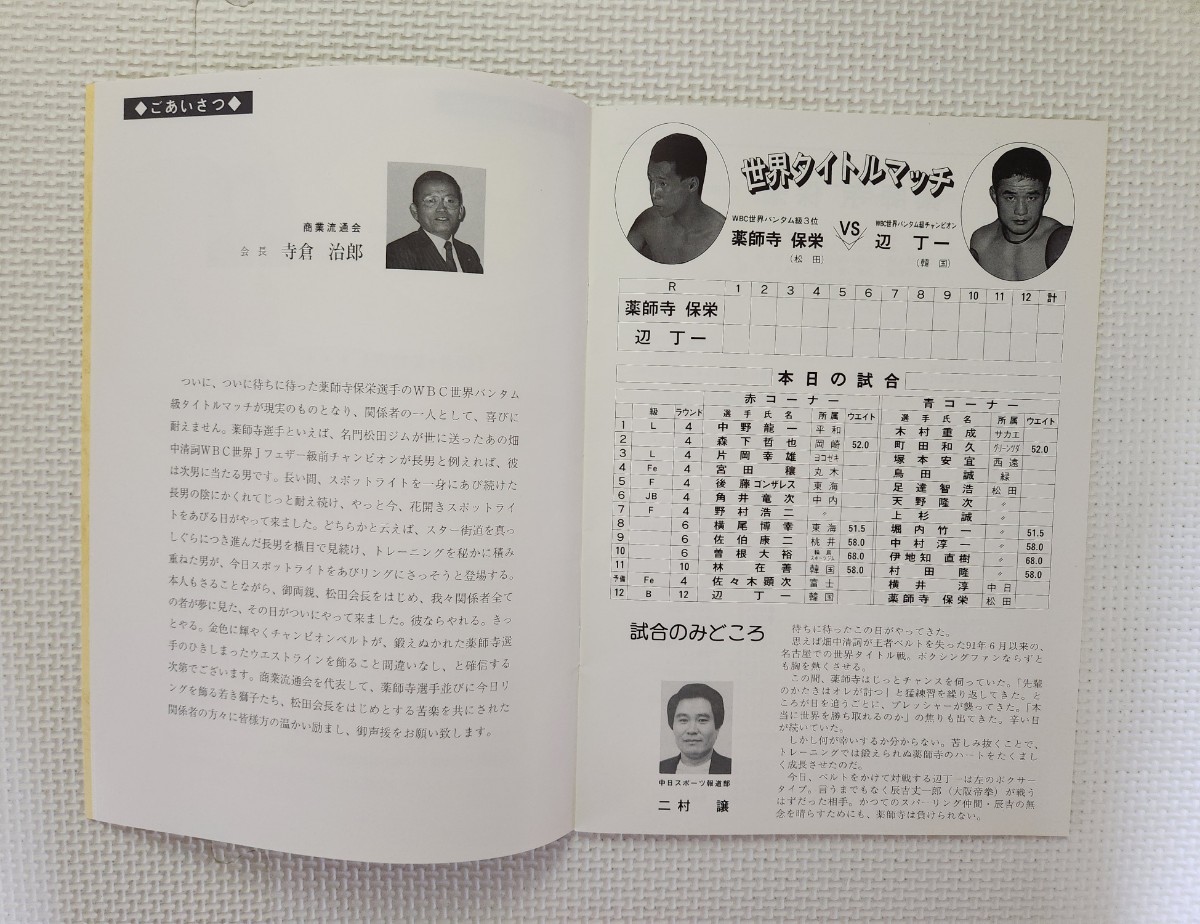 ◆ごあいさつ◆
商業流通会
会長 寺倉 治郎
ついに、ついに待ちに待った薬師寺保栄選手のＷＢＣ世界バンタム
級タイトルマッチが現実のものとなり、関係者の一人として、喜びに
耐えません。薬師寺選手といえば、名門松田ジムが世に送ったあの畑
中清詞ＷＢＣ世界Ｊフェザー級前チャンピオンが長男と例えれば、彼
は次男に当たる男です。長い間、スポットライトを一身にあび続けた
長男の陰にかくれてじっと耐え続け、やっと今、花開きスポットライ
トをあびる日がやって来ました。どちらかと云えば、スター街道を真っ
しぐらにつき進んだ長男を横目で見続け、トレーニングを秘かに積み
重ねた男が、今日スポットライトをあびリングにさっそうと登場する。
本人もさることながら、御両親、松田会長をはじめ、我々関係者全て
の者が夢に見た、その日がついにやって来ました。彼ならやれる。きっ
とやる。金色に輝くチャンピオンベルトが、鍛えぬかれた薬師寺選
手のひきしまったウエストラインを飾ること間違いなし、と確信する
次第でございます。商業流通会を代表して、薬師寺選手並びに今日リ
ングを飾る若き獅子たち、松田会長をはじめとする苦楽を共にされた
関係者の方々に皆様方の温かい励まし、御声援をお願い致します。
世界タイトルマッチ
WBC世界バンタム級３位
薬師寺 保栄
（松田）
VS
WBC世界バンタム級チャンピオン
辺 丁一
（韓国）
R 1 2 3 4 5 6 7 8 9 10 11 12 計
薬師寺 保栄
辺 丁一
本日の試合
赤コーナー 青コーナー
級 ラウンド 選手氏名 所属 ウエイト 選手氏名 所属 ウエイト
1 L 4 中野龍一 平和 木村重成 サカエ
2 4 森下哲也 岡崎 52.0 町田和久 グリーンツダ 52.0
3 L 4 片岡幸雄 ヨコゼキ 塚本安宜 西遠
4 Fe 4 宮田穣 丸木 鳥田誠 緑
5 F 4 後藤ゴンザレス 東海 足達智浩 松田
6 JB 4 角井竜次 中内 天野隆次 〃
7 F 4 野村浩二 〃 上杉誠 〃
8 6 横尾博幸 東海 51.5 堀内竹一 〃 51.5
9 6 佐伯康二 桃井 58.0 中村淳一 〃 58.0
10 6 曽根大裕 68.0 伊地知直樹 〃 68.0
11 10 林在善 韓国 58.0 村田隆 〃 58.0
予備 Fe 4 佐々木顕次 富士 横井淳 中日
12 B 12 辺丁一 韓国 薬師寺保栄 松田
試合のみどころ
中日スポーツ報道部
二村 譲
待ちに待ったこの日がやってきた。
思えば畑中清詞が王者ベルトを失った91年６月以来の、
名古屋での世界タイトル戦。ボクシングファンならずと
も胸を熱くさせる。
この間、薬師寺はじっとチャンスを伺っていた。「先輩
のかたきはオレが討つ」と猛練習を繰り返してきた。と
ころが日を追うごとに、プレッシャーが襲ってきた。「本
当に世界を勝ち取れるのか」の焦りも出てきた。辛い日
が続いていた。
しかし何が幸いするか分からない。苦しみ抜くことで、
トレーニングでは鍛えられぬ薬師寺のハートをたくまし
く成長させたのだ。
今日、ベルトをかけて対戦する辺丁一は左のボクサー
タイプ。言うまでもなく辰吉丈一郎（大阪帝拳）が戦う
はずだった相手。かつてのスパーリング仲間・辰吉の無
念を晴らすためにも、薬師寺は負けられない。